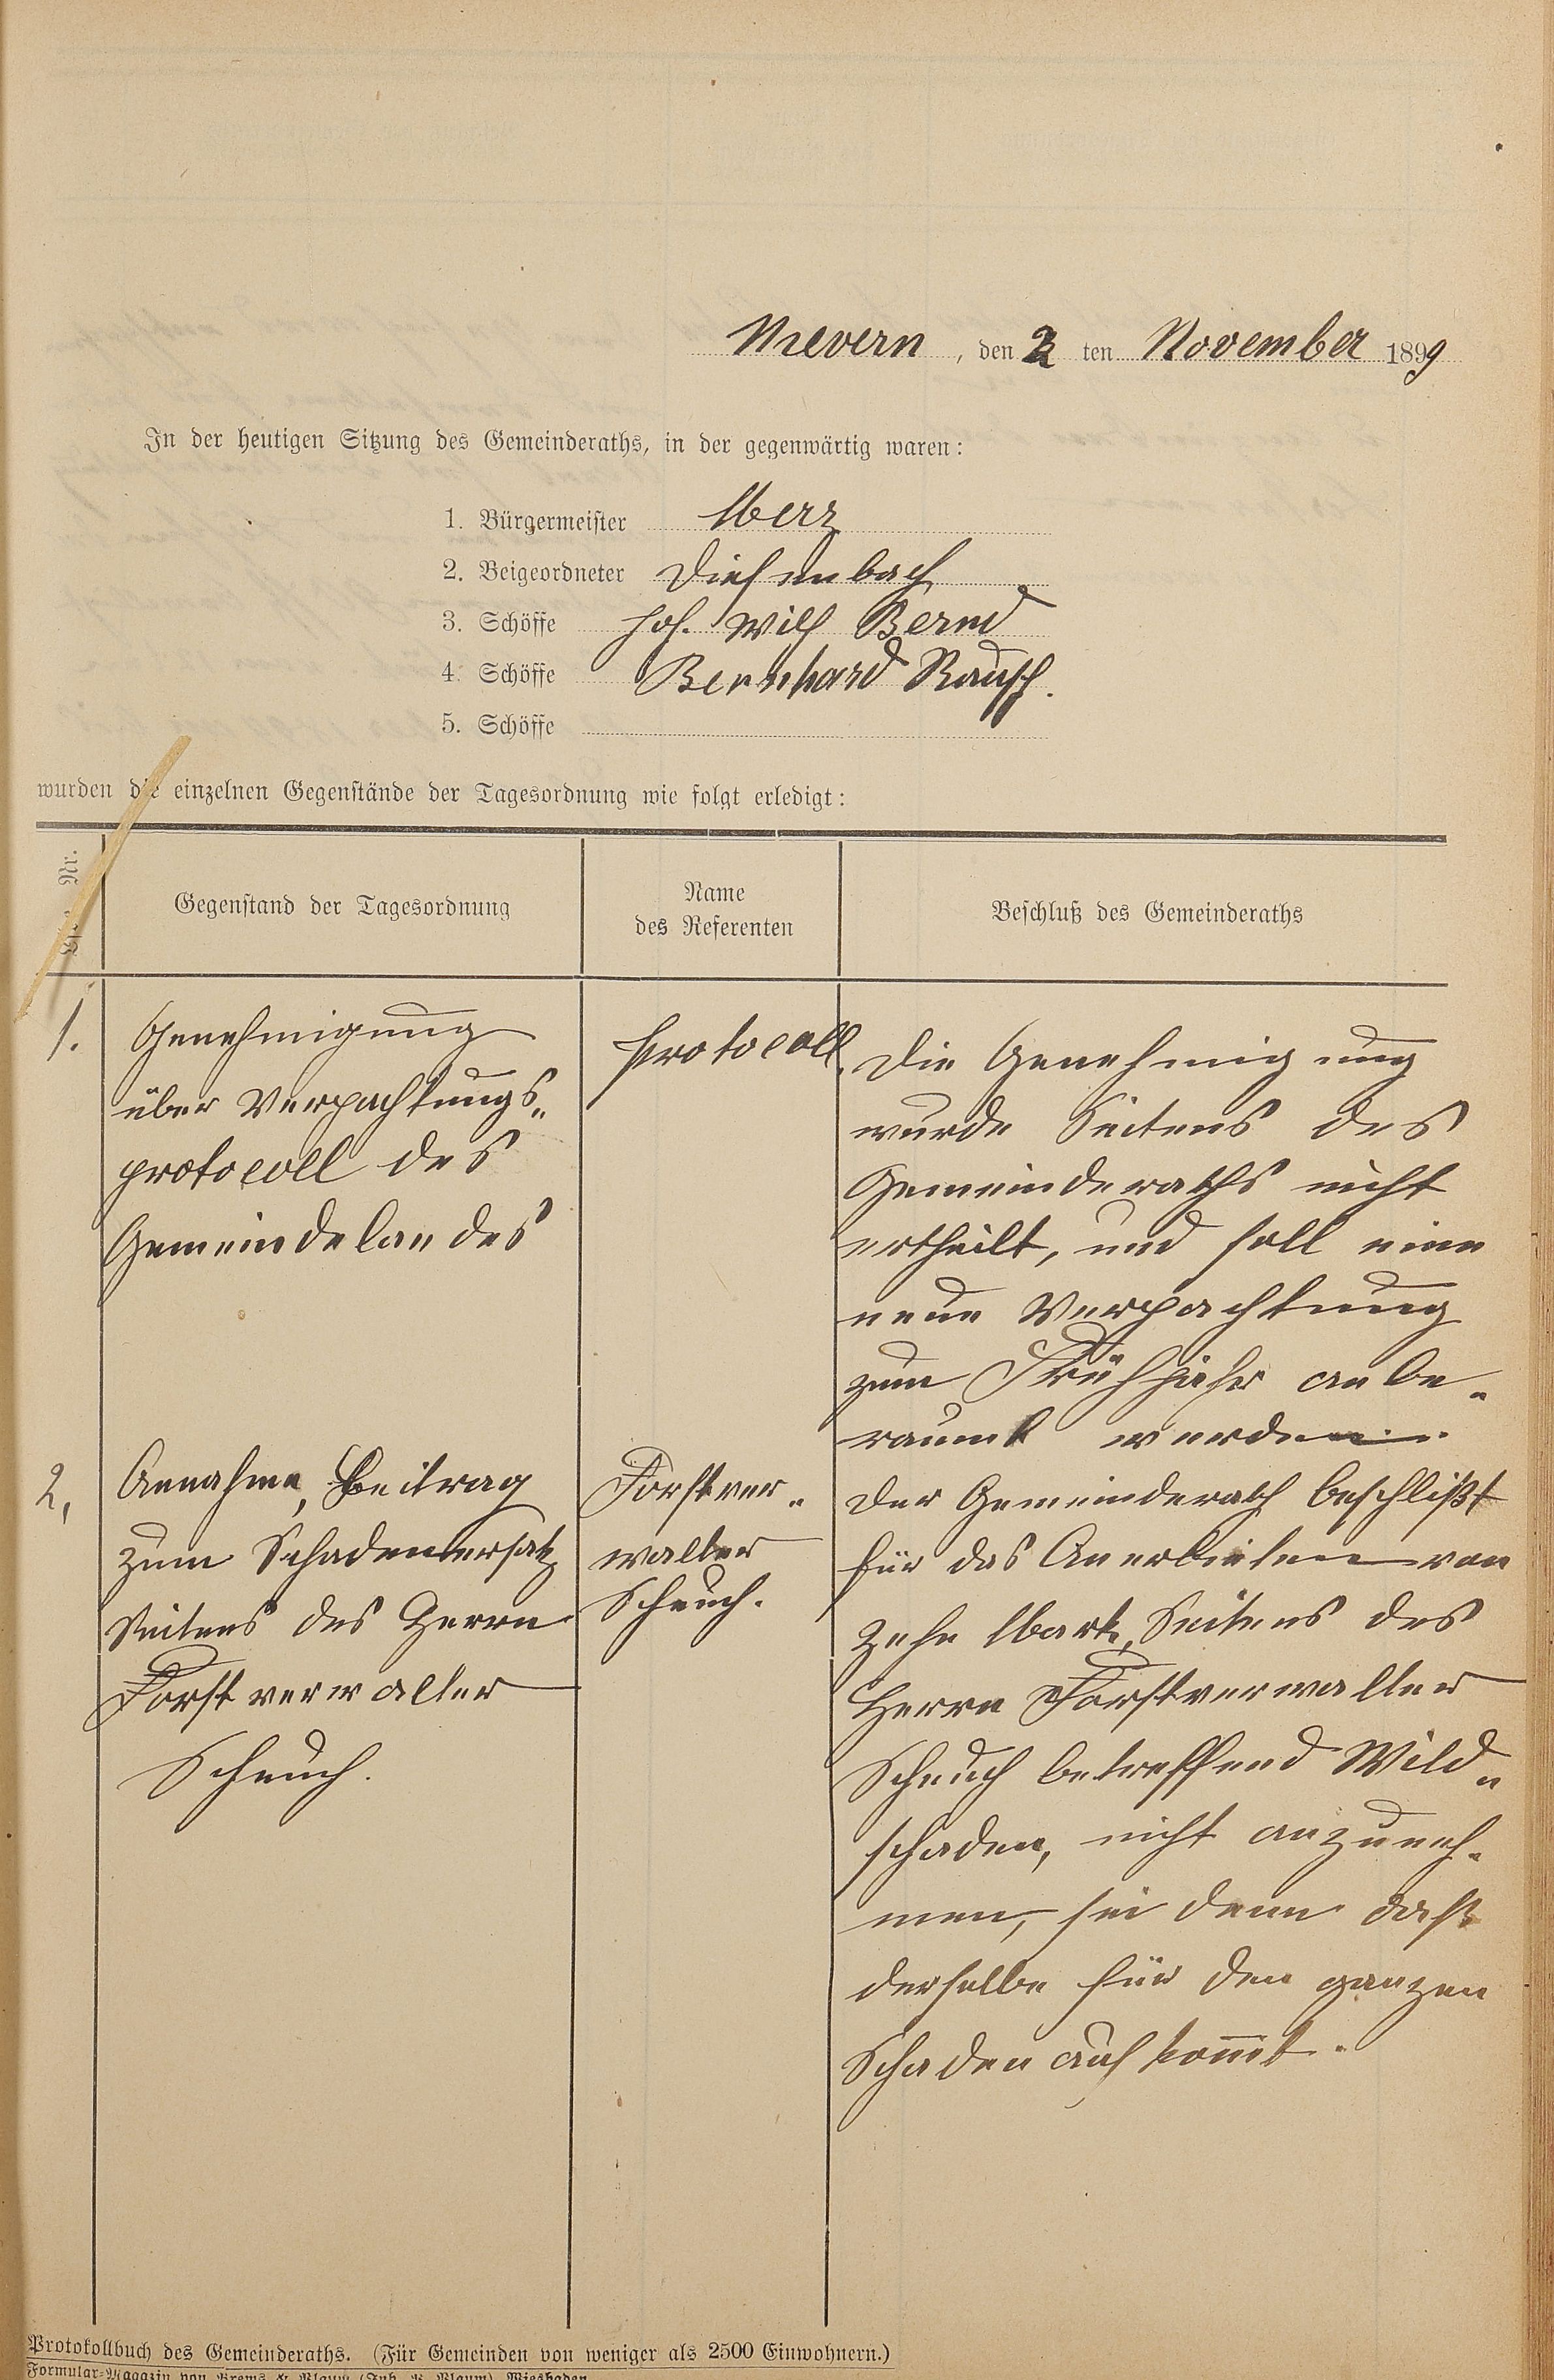 Nievern, den 2 ten November 1899
In der heutigen Sitzung des Gemeinderaths, in der gegenwärtig waren:
1. Bürgermeister Merz
2. Beigeordneter Diefenbach
3. Schöffe Joh. Wilh Bernd
4. Schöffe Bernhard Rausch.
5. Schöffe
wurden die einzelnen Gegenstände der Tagesordnung wie folgt erledigt:
Nr.
Gegenstand der Tagesordnung
Name
des Referenten
Beschluß des Gemeinderaths
1.
Genehmigung
über Verpachtungs„
protocoll des
Gemeindelandes
Protocoll
Die Genehmigung
wurde Seitens des
Gemeinderaths nicht
ertheilt, und soll eine
neue Verpachtung
zum Frühjahr anbe„
raumt werden.
2,
Annahme, Beitrag
zum Schadenersatz
Seitens des Herrn
Forstverwalter
Scheuch.
Forstver„
walter
Scheuch.
Der Gemeinderath beschlißt
für das Anerbieten von
Zehn Mark, Seitens des
Herrn Forstverwalter
Scheuch betreffend Wild„
schaden, nicht anzuneh„
men, sei denn daß
derselbe für den ganzen
Schaden aufkom̅t.
Protokollbuch des Gemeinderaths. (Für Gemeinden von weniger als 2500 Einwohnern.)
Formular-Magazin von Brems & Plaum (Inh. P. Plaum), Wiesbaden